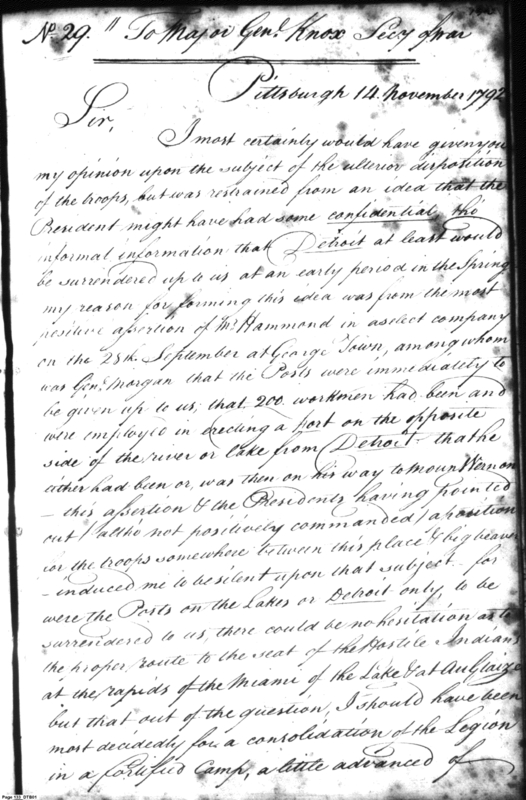 No. 29. " To Major Genl. Knox Secy of War
Pittsburgh 14 November 1792
Sir,
I most certainly would have given you
my opinion upon the subject of the ulterior disposition
of the troops, but was restrained from an idea that the
President might have had some confidential, tho
informal information that Detroit at least would
be surrendered up to us at an early period in the Spring
my reason for forming this idea was from the most
positive assertion of Mr. Hammond in a select company
on the 28th. September at George Town, among whom
was Genl. Morgan that the Posts were immediately to
be given up to us; that 200 workmen had been and
were employed in erecting a fort on the opposite
side of the river or lake from Detroit that he
either had been or, was then on his way to Mount Vernon
- this assertion & the Presidents having pointed
out (altho not positively commanded) a position
for the troops somewhere between this place & big beaver
- induced me to be silent upon that subject. for
were the Posts on the Lakes or Detroit only, to be
surrendered to us, there could be no hesitation as to
the proper route to the seat of the Hostile Indians
at the rapids of the Miami of the Lake & at Au Glaize
but that out of the question, I should have been
most decidedly for a consolidation of the Legion
in a fortified Camp, a little advanced of